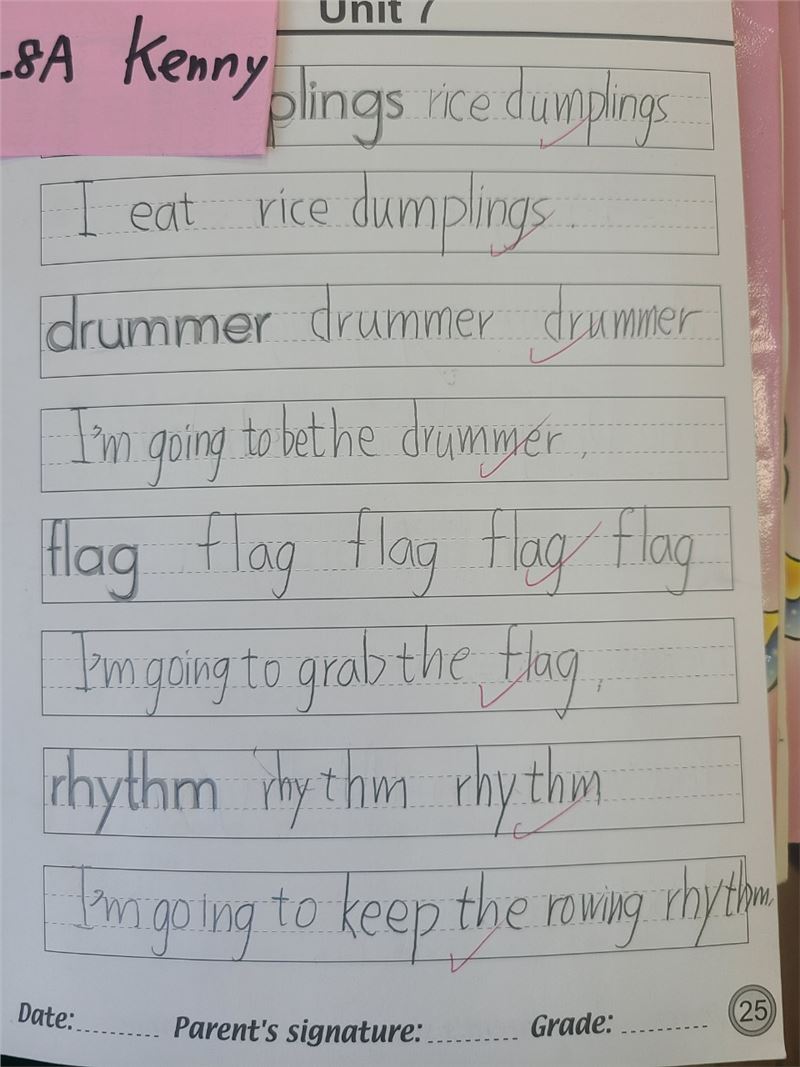 Unit 7
-8A Kenny
plings rice dumplings
I eat rice dumplings.
drummer drummer drummer
I'm going to be the drummer.
flag flag flag flag flag
I'm going to grab the flag.
rhythm rhythm rhythm
I'm going to keep the rowing rhythm.
Date: Parent's signature: Grade: 25